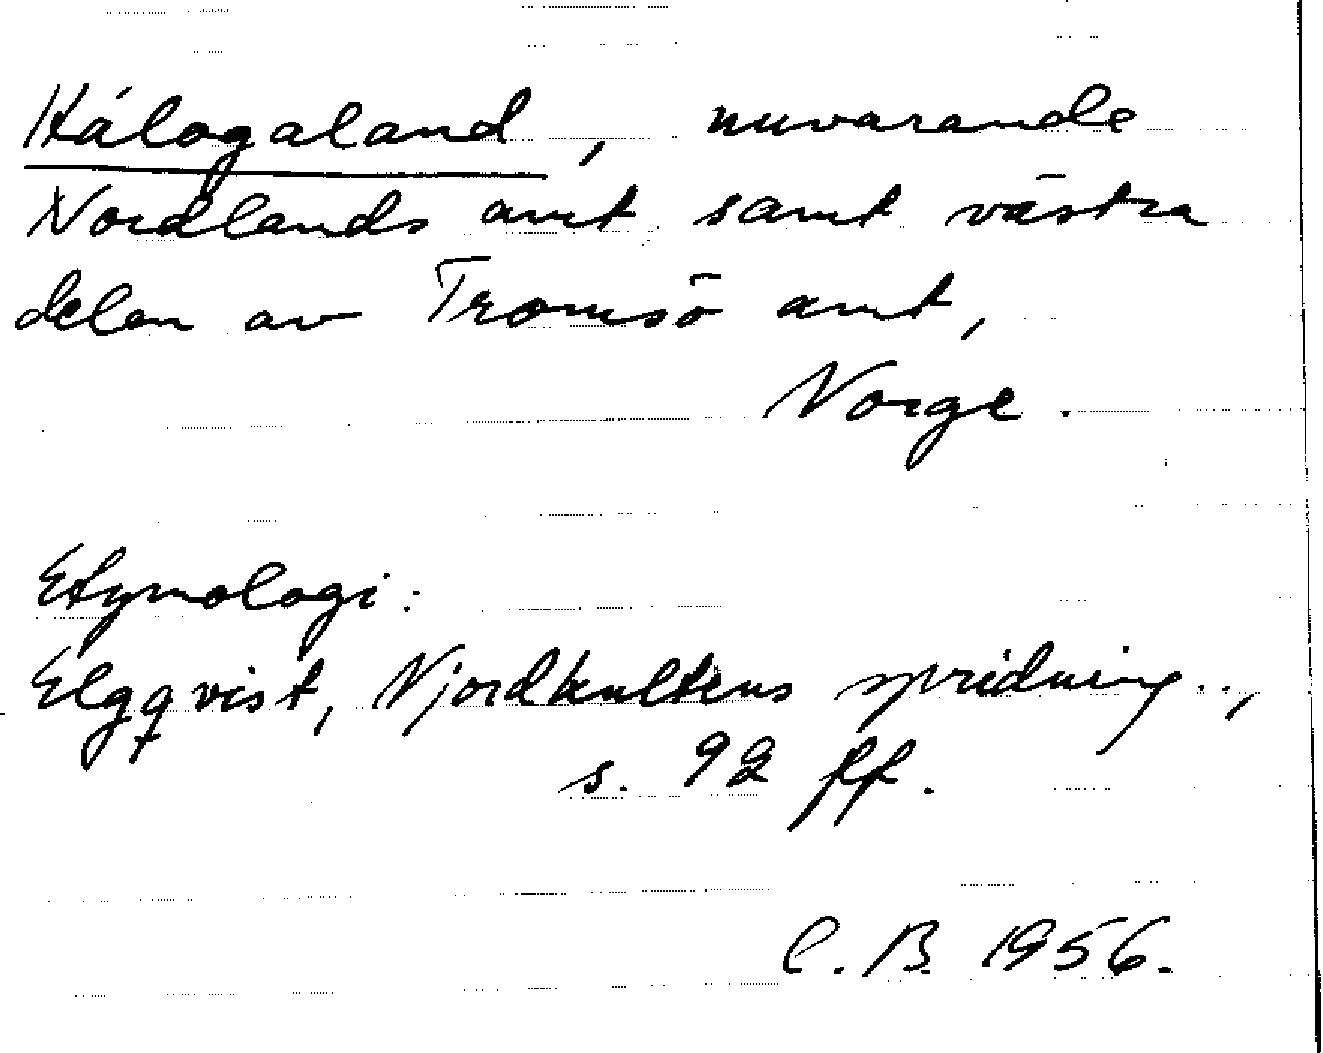 Hálogaland, nuvarande
Nordlands amt samt västra
delen av Tromsö amt,
Norge.
Etymologi:
Elgqvist, Njordkultens spridning..,
s. 92 ff.
C.B. 1956.